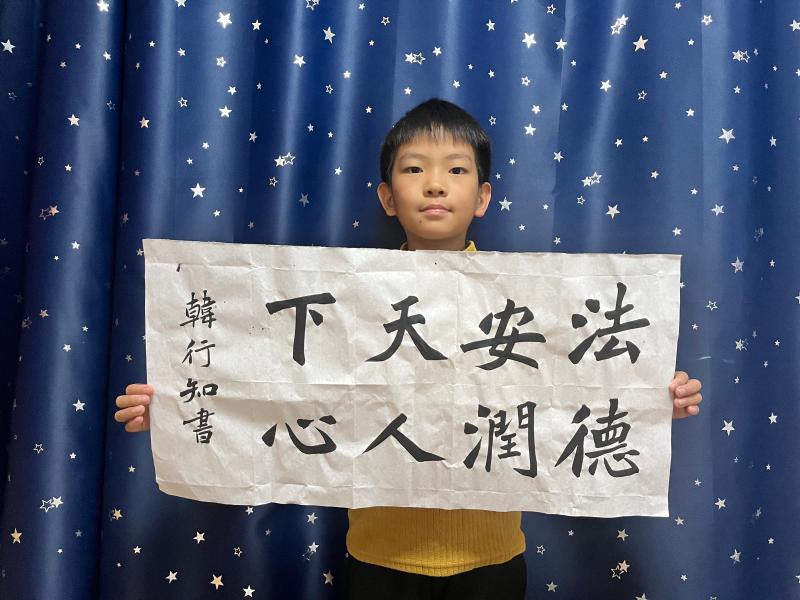 法安天下
德潤人心
韓行知書